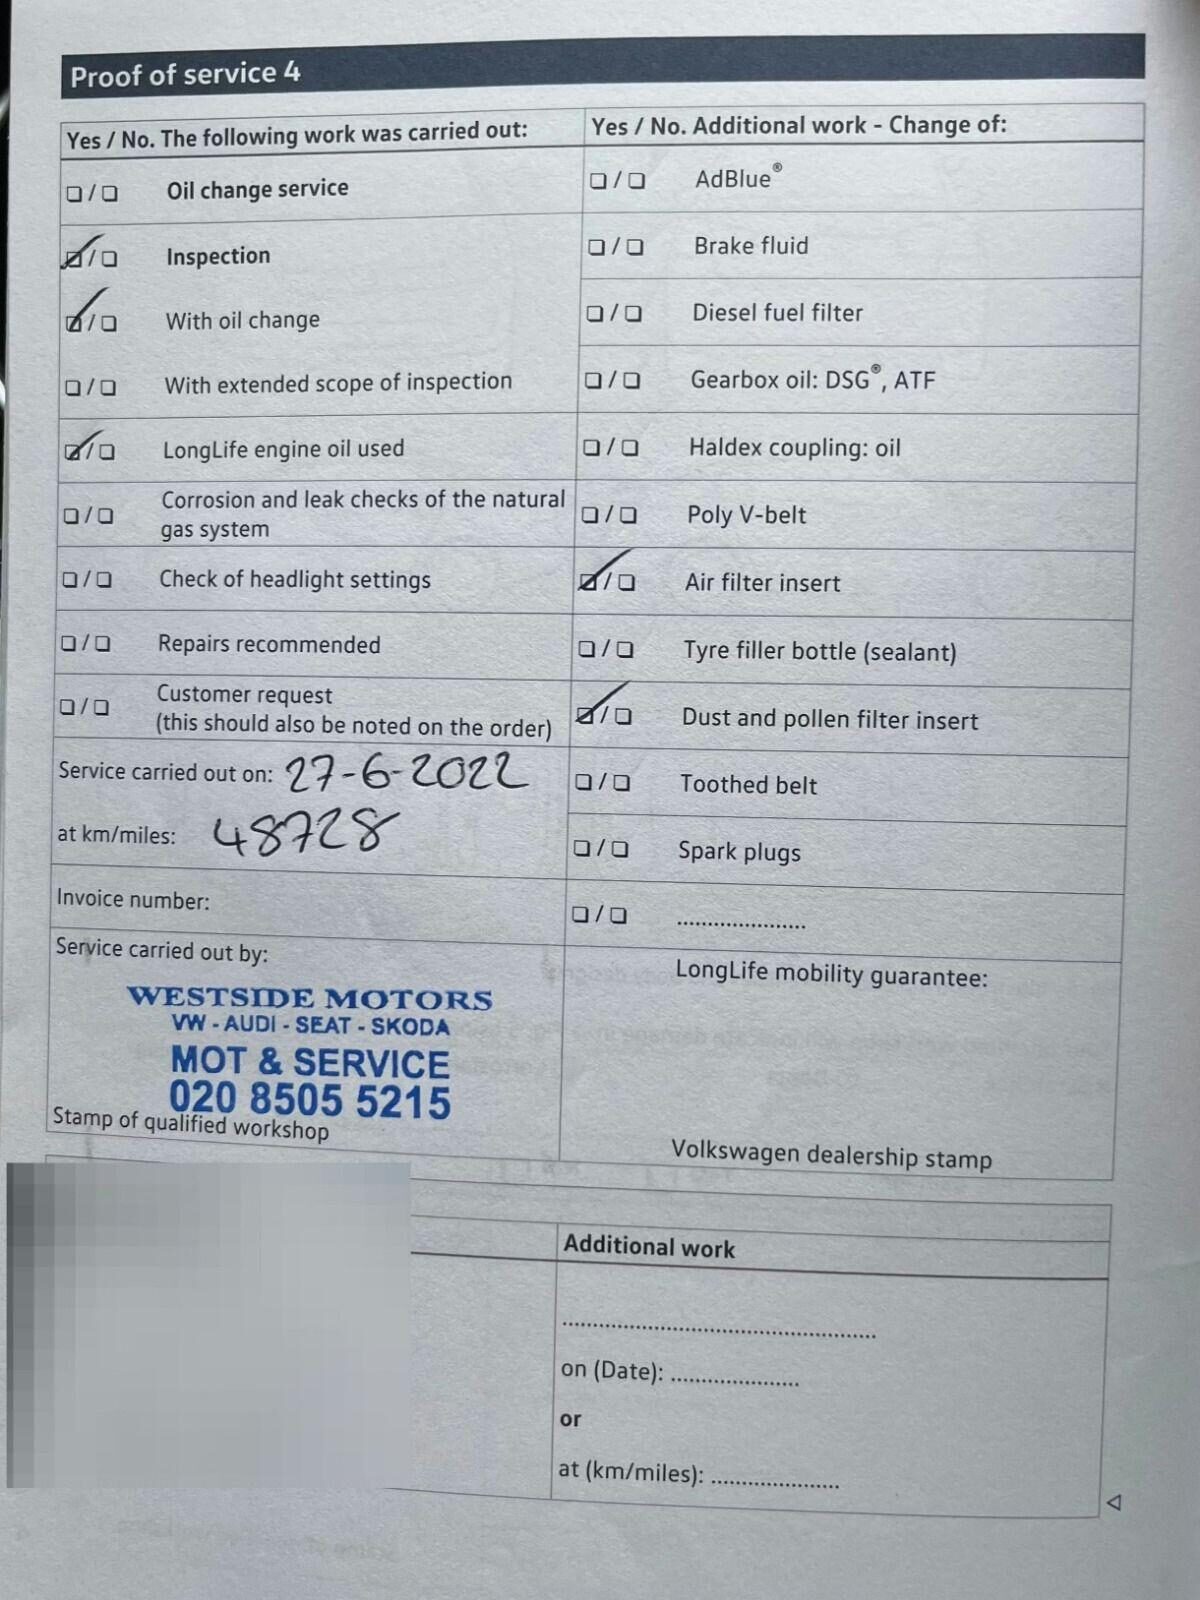 Proof of service 4
Yes / No. The following work was carried out:
Oil change service
Inspection
With oil change
With extended scope of inspection
LongLife engine oil used
Corrosion and leak checks of the natural
gas system
Check of headlight settings
Repairs recommended
Customer request
(this should also be noted on the order)
Service carried out on: 27-6-2022
at km/miles: 48728
Invoice number:
Service carried out by:
WESTSIDE MOTORS
VW - AUDI - SEAT - SKODA
MOT & SERVICE
020 8505 5215
Stamp of qualified workshop
Yes / No. Additional work - Change of:
AdBlue®
Brake fluid
Diesel fuel filter
Gearbox oil: DSG®, ATF
Haldex coupling: oil
Poly V-belt
Air filter insert
Tyre filler bottle (sealant)
Dust and pollen filter insert
Toothed belt
Spark plugs
LongLife mobility guarantee:
Volkswagen dealership stamp
Additional work
on (Date):
or
at (km/miles):